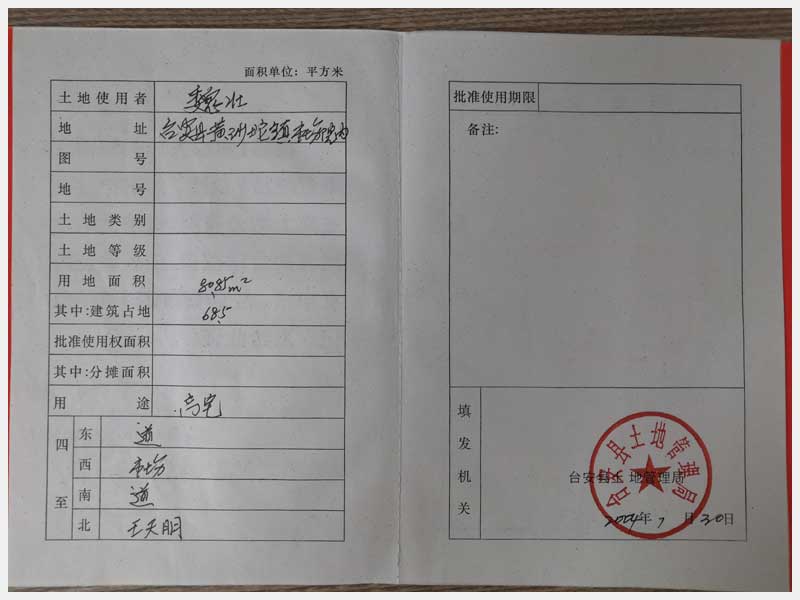 面积单位：平方米
土地使用者 魏壮
地址 台安县黄沙坨镇市场院内
图号
地号
土地类别
土地等级
用地面积 80.85m²
其中:建筑占地 68.5
批准使用权面积
其中:分摊面积
用途
四至
东 道
西 市场
南 道
北 王天明
批准使用期限
备注:
填发机关
台安县土地管理局
台安县土地管理局
2004年7月30日